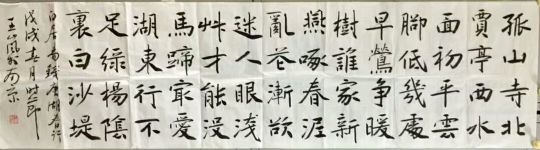 孤山寺北
賈亭西水
面初平雲
脚低幾處
早鶯争暖
樹誰家新
燕啄春泥
亂花漸欲
迷人眼淺
艸才能没
馬蹄最愛
湖東行不
足綠楊陰
裏白沙堤
白居易錢唐湖春行
戊戌春月時
王